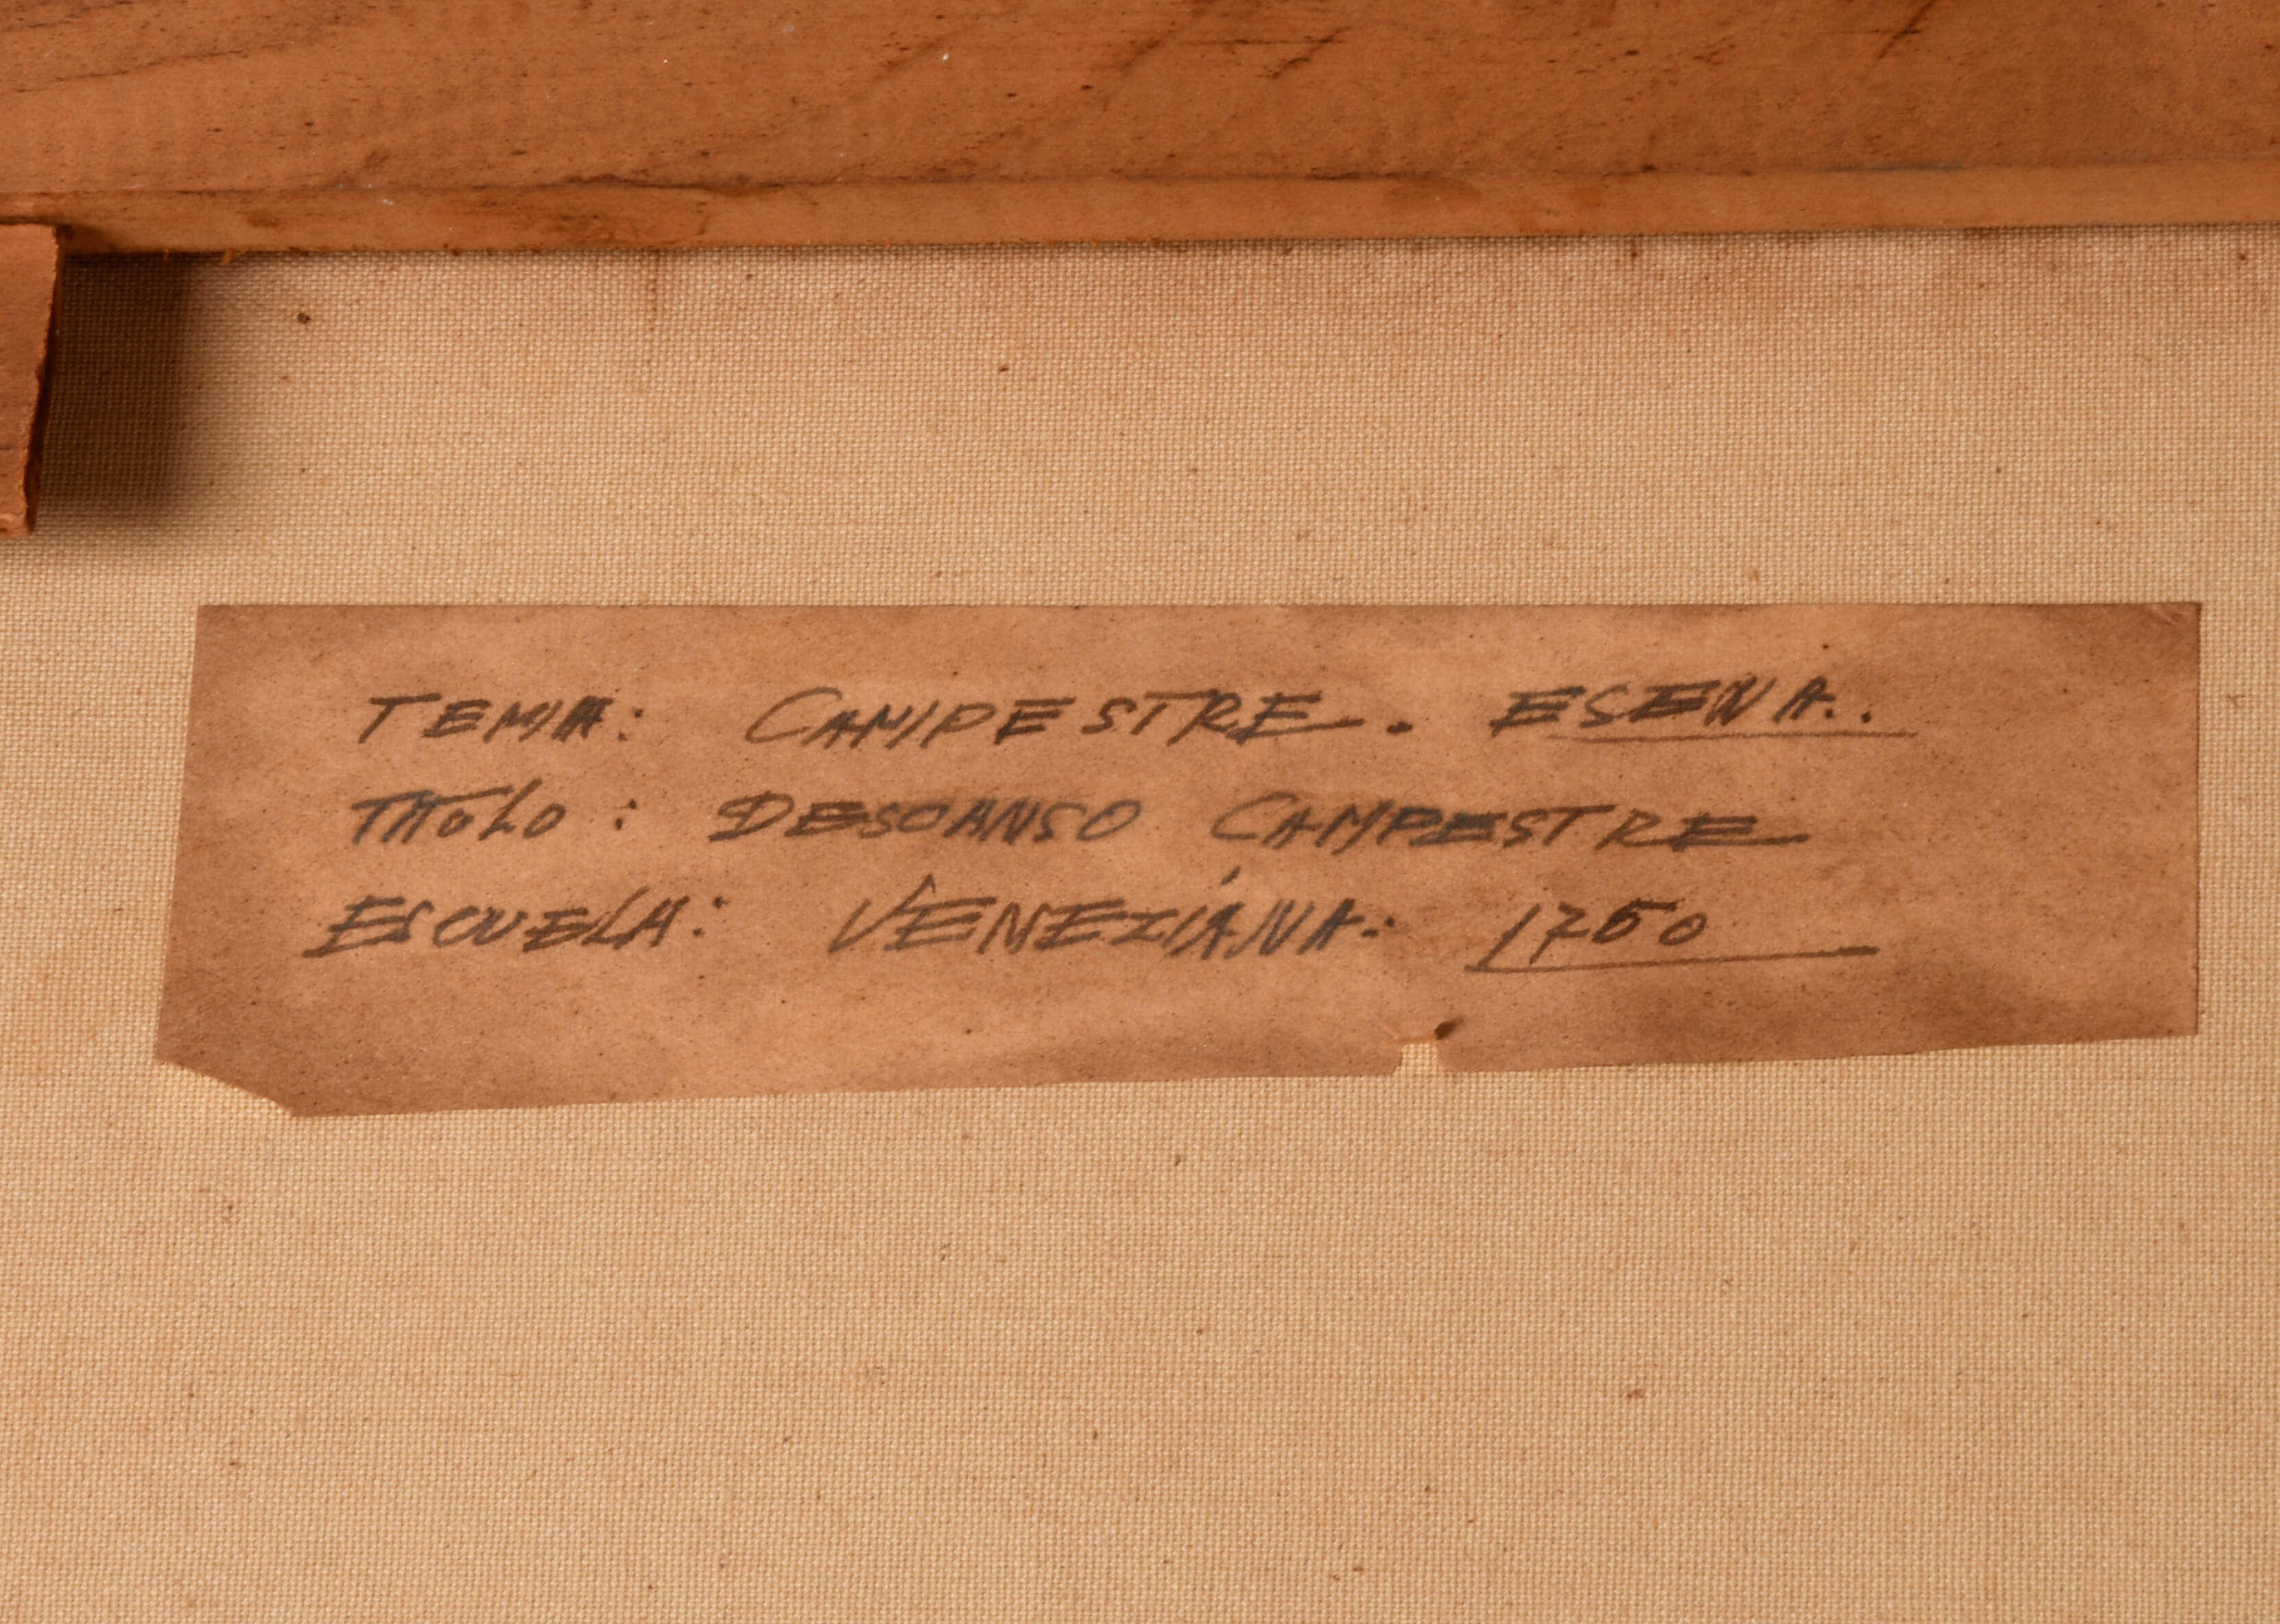 TEMA: CAMPESTRE. ESENA..
TITULO: DESCANSO CAMPESTRE
ESCUELA: VENEZIÁNA: 1750